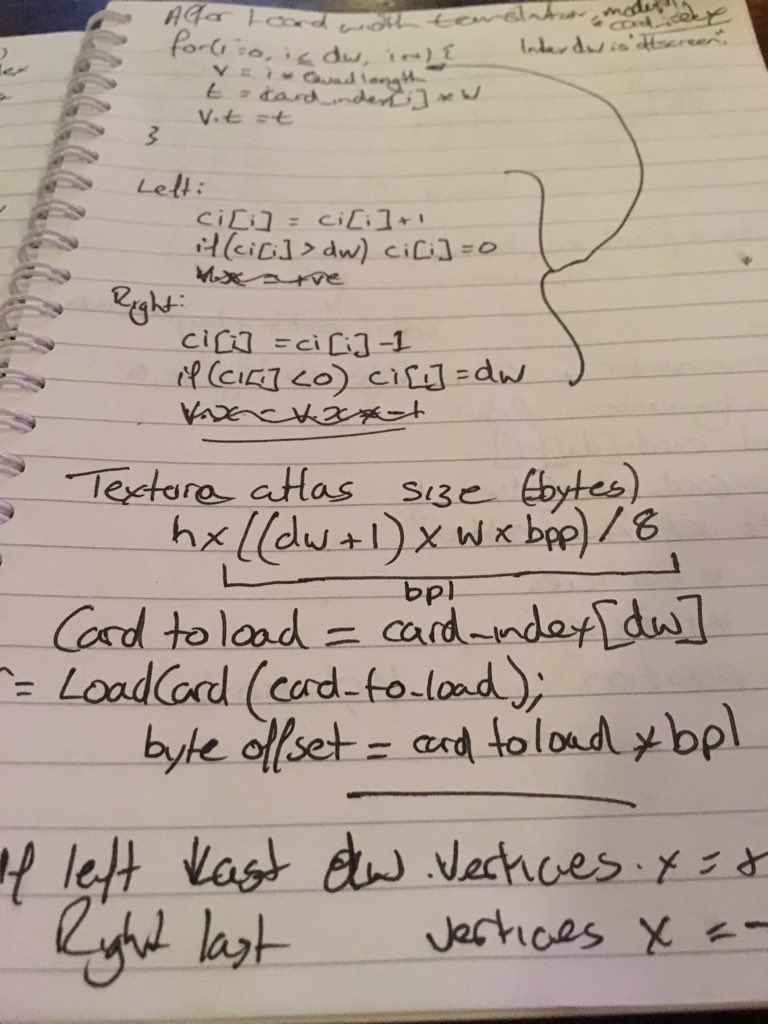 After 1 card width translation, modify
card_index
for(i=0, i≤ dw, i++) {
Index dw is "offscreen"
v = i * Quadlength
t = card_index[i] * w
v.t = t
}
Left:
ci[i] = ci[i]+1
if(ci[i] > dw) ci[i]=0
Right:
ci[i] = ci[i]-1
if(ci[i] <0) ci[i]=dw
Texture atlas size (bytes)
h x ((dw+1) x w x bpp) / 8
bpl
Card to load = card_index[dw]
= LoadCard (card_to_load);
byte offset = card to load * bpl
If left last dw .vertices. x =
Right last vertices x = -